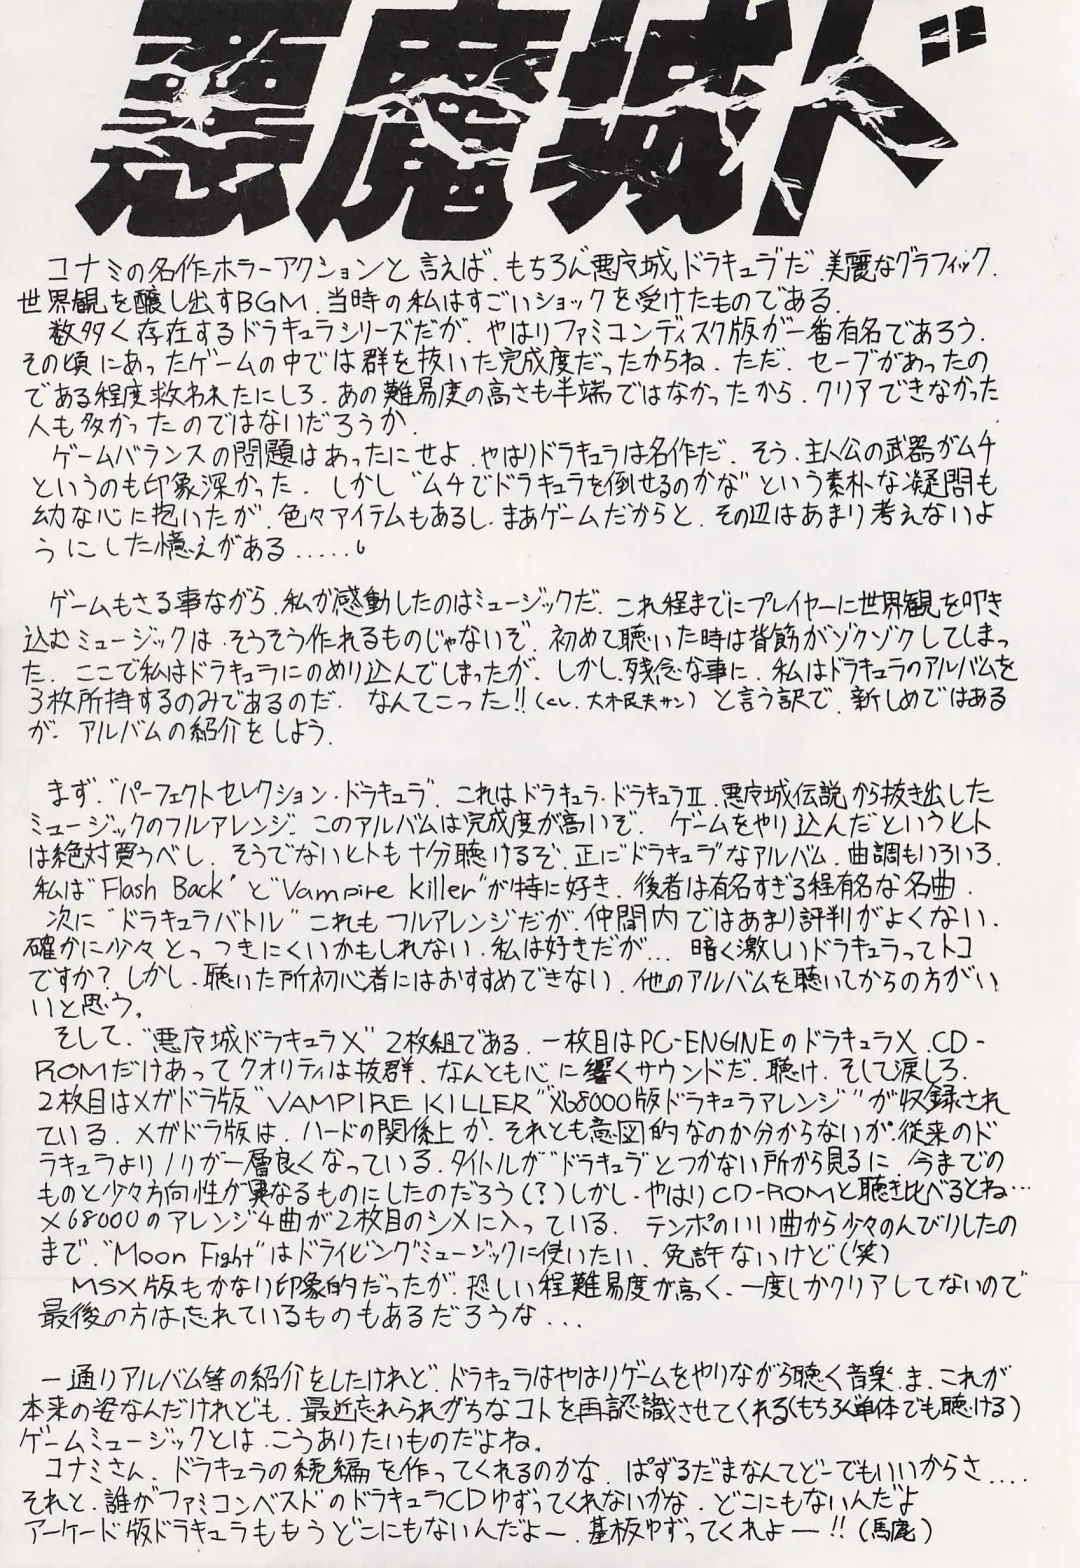 悪魔城ド
コナミの名作ホラーアクションと言えば、もちろん悪魔城ドラキュラだ。美麗なグラフィック、
世界観を醸し出すBGM、当時の私はすごいショックを受けたものである。
数多く存在するドラキュラシリーズだが、やはりファミコンディスク版が一番有名であろう。
その頃にあったゲームの中では群を抜いた完成度だったからね。ただ、セーブがあったの
である程度救われたにしろ、あの難易度の高さも半端ではなかったから、クリアできなかった
人も多かったのではないだろうか。
ゲームバランスの問題はあったにせよ、やはりドラキュラは名作だ。そう、主人公の武器がムチ
というのも印象深かった。しかし“ムチでドラキュラを倒せるのかな”という素朴な凝問も
幼な心に抱いたが、色々アイテムもあるし、まあゲームだからと、その辺はあまり考えないよ
うにした憶えがある.....。
ゲームもさる事ながら、私が感動したのはミュージックだ。これ程までにプレイヤーに世界観を叩き
込むミュージックは、そうそう作れるものじゃないぞ。初めて聴いた時は背筋がゾクゾクしてしまっ
た。ここで私はドラキュラにのめり込んでしまったが、しかし残念な事に、私はドラキュラのアルバムを
3枚所持するのみであるのだ。なんてこった!!(cv.大木民夫サン)と言う訳で、新しめではある
が、アルバムの紹介をしよう。
まず、“パーフェクトセレクション・ドラキュラ”。これはドラキュラ・ドラキュラⅡ、悪魔城伝説から抜き出した
ミュージックのフルアレンジ。このアルバムは完成度が高いぞ。ゲームをやり込んだというヒト
は絶対買うべし。そうでないヒトも十分聴けるぞ。正に“ドラキュラ”なアルバム。曲調もいろいろ。
私は“Flash Back”と“Vampire Killer”が特に好き。後者は有名すぎる程有名な名曲。
次に“ドラキュラバトル”これもフルアレンジだが、仲間内ではあまり評判がよくない。
確かに少々とっつきにくいかもしれない。私は好きだが... 暗く激しいドラキュラってトコ
ですか?しかし、聴いた所初心者にはおすすめできない。他のアルバムを聴いてからの方がい
いと思う。
そして、“悪魔城ドラキュラX”2枚組である。一枚目はPC-ENGINEのドラキュラX。CD-
ROMだけあってクオリティは抜群。なんとも心に響くサウンドだ。聴け、そして涙しろ。
2枚目はメガドラ版“VAMPIRE KILLER”“X68000版ドラキュラアレンジ”が収録され
ている。メガドラ版は、ハードの関係上か、それとも意図的なのか分からないが、従来のド
ラキュラよりノリが一層良くなっている。タイトルが“ドラキュラ”とつかない所から見るに、今までの
ものと少々方向性が異なるものにしたのだろう(?)しかし、やはりCD-ROMと聴き比べるとね…
X68000のアレンジ4曲が2枚目のシメに入っている。テンポのいい曲から少々のんびりしたの
まで。“Moon Fight”はドライビングミュージックに使いたい。免許ないけど(笑)
MSX版もかなり印象的だったが、恐しい程難易度が高く、一度しかクリアしてないので
最後の方は忘れているものもあるだろうな...
一通りアルバム等の紹介をしたけれど、ドラキュラはやはりゲームをやりながら聴く音楽。ま、これが
本来の姿なんだけれども、最近忘れられがちなコトを再認識させてくれる(もちろん単体でも聴ける)
ゲームミュージックとは、こうありたいものだよね。
コナミさん、ドラキュラの続編を作ってくれるのかな。ぱずるだまなんてどーでもいいからさ....
それと、誰がファミコンベストのドラキュラCDゆずってくれないかな。どこにもないんだよ
アーケード版ドラキュラももうどこにもないんだよー。基板ゆずってくれよー!!(馬鹿)